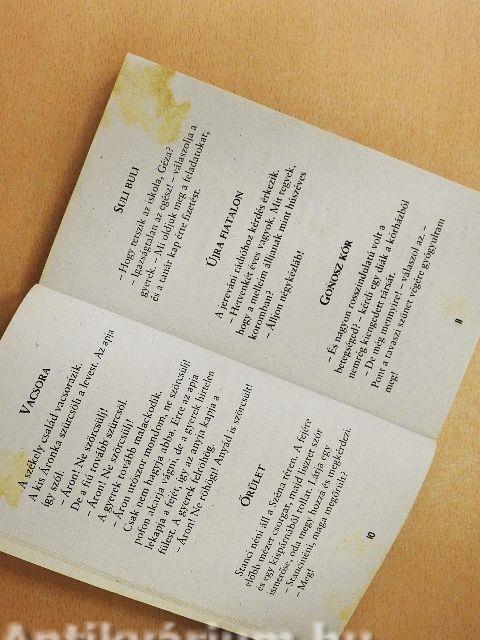 VACSORA
A székely család vacsorázik.
A kis Áronka szürcsöli a levest. Az apja
így szól:
– Áron! Ne szörcsülj!
De a fiú tovább szürcsöl.
– Áron! Ne szörcsülj!
A gyerek tovább mulackodik.
– Áron utószor mondom, ne szörcsülj!
Csak nem hagyja abba. Erre az apja
pofon akarja vágni, de a gyerek hirtelen
lekapja a fejét, így az anyja kapja a
fülest. A gyerek felröhög.
– Áron! Ne röhögj! Anyád is szörcsült!
ŐRÜLET
Stanci néni áll a Széna téren. A fejére
előbb mézet csorgat, majd lisztet szór
és egy kispárnából tollat. Látja egy
ismerőse, oda megy hozzá és megkérdezi.
– Stancinéni, maga megőrült?
– Meg!
10
SULI BULI
– Hogy tetszik az iskola, Géza?
– Igazságtalan az egész! – válaszolja a
gyerek. – Mi oldjuk meg a feladatokat,
és a tanár kap érte fizetést.
ÚJRA FIATALON
A jereváni rádióhoz kérdés érkezik.
– Hetvenkét éves vagyok. Mit tegyek,
hogy a melleim álljanak mint húszéves
koromban?
– Álljon négykézláb!
GONOSZ KÓR
– És nagyon rosszindulatú volt a
betegséged? – kérdi egy diák a kórházból
nemrég kiengedett társát.
– De még mennyire! – válaszol az. –
Pont a tavaszi szünet végére gyógyultam
meg!
11
Antikvárium.hu